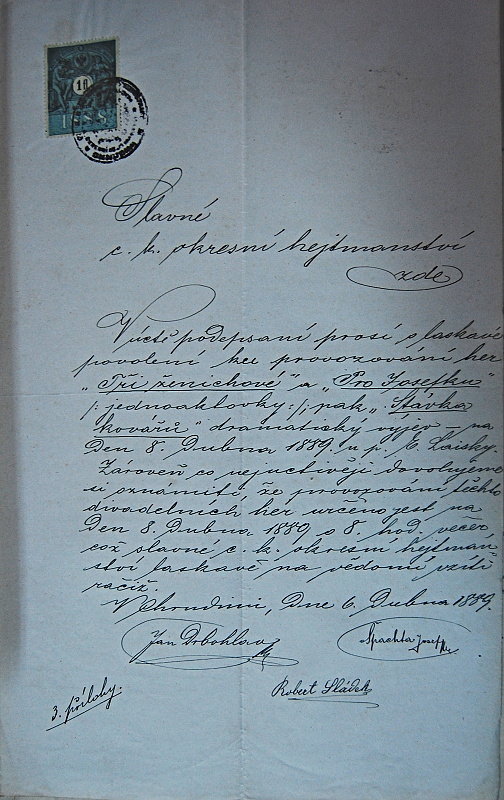 1888
Slavné
c. k. okresní hejtmanství
zde
V úctě podepsaní prosí o laskavé
povolení ku provozování her
„Tři ženichové" a „Pro Josefku"
/: jednoaktovky :/; pak „Stávka
kovářů" dramatický výjev – na
den 8. Dubna 1889 u p. E. Laisky.
Zároveň co nejuctivěji dovolujeme
si oznámiti, že provozování těchto
divadelních her určeno jest na
den 8. Dubna 1889 o 8. hod. večer
což slavné c. k. okresní hejtman-
ství laskavě na vědomí vzíti
račiž.
V Chrudimi, Dne 6. Dubna 1889.
Jan Drbohlav
Špachta Josef
Robert Sládek
3. přílohy.